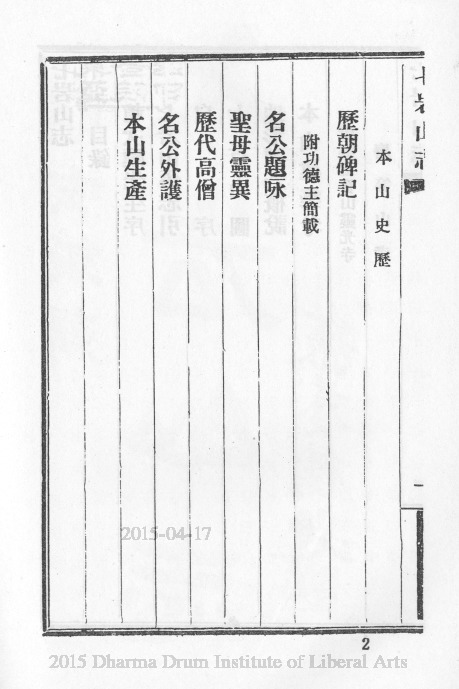 七岩山志
本山史歷
歷朝碑記
附功德主簡載
名公題咏
聖母靈異
歷代高僧
名公外護
本山生產
一
2
2015-04-17
2015 Dharma Drum Institute of Liberal Arts